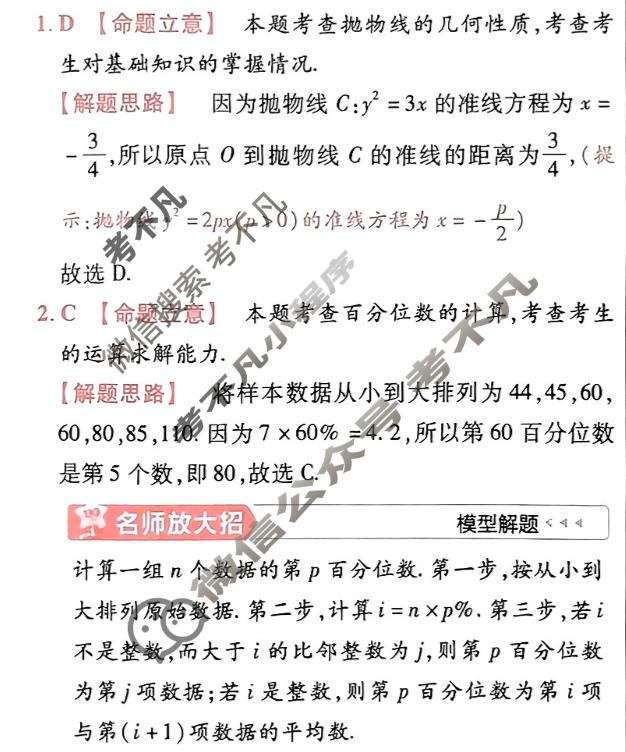 1. D 【命题立意】 本题考查抛物线的几何性质,考查考
生对基础知识的掌握情况.
【解题思路】 因为抛物线 C:y² = 3x 的准线方程为 x =
-3/4,所以原点 O 到抛物线 C 的准线的距离为3/4,(提
示:抛物线 y² = 2px(p>0)的准线方程为 x = -p/2)
故选 D.
2. C 【命题立意】 本题考查百分位数的计算,考查考生
的运算求解能力.
【解题思路】 将样本数据从小到大排列为 44,45,60,
60,80,85,110. 因为 7×60% = 4.2,所以第 60 百分位数
是第 5 个数,即 80,故选 C.
名师放大招 模型解题
计算一组 n 个数据的第 p 百分位数. 第一步,按从小到
大排列原始数据. 第二步,计算 i = n×p%. 第三步,若 i
不是整数,而大于 i 的比邻整数为 j,则第 p 百分位数
为第 j 项数据;若 i 是整数,则第 p 百分位数为第 i 项
与第(i+1)项数据的平均数.
考不凡
微信搜索 考不凡
考不凡小程序
微信公众号 考不凡